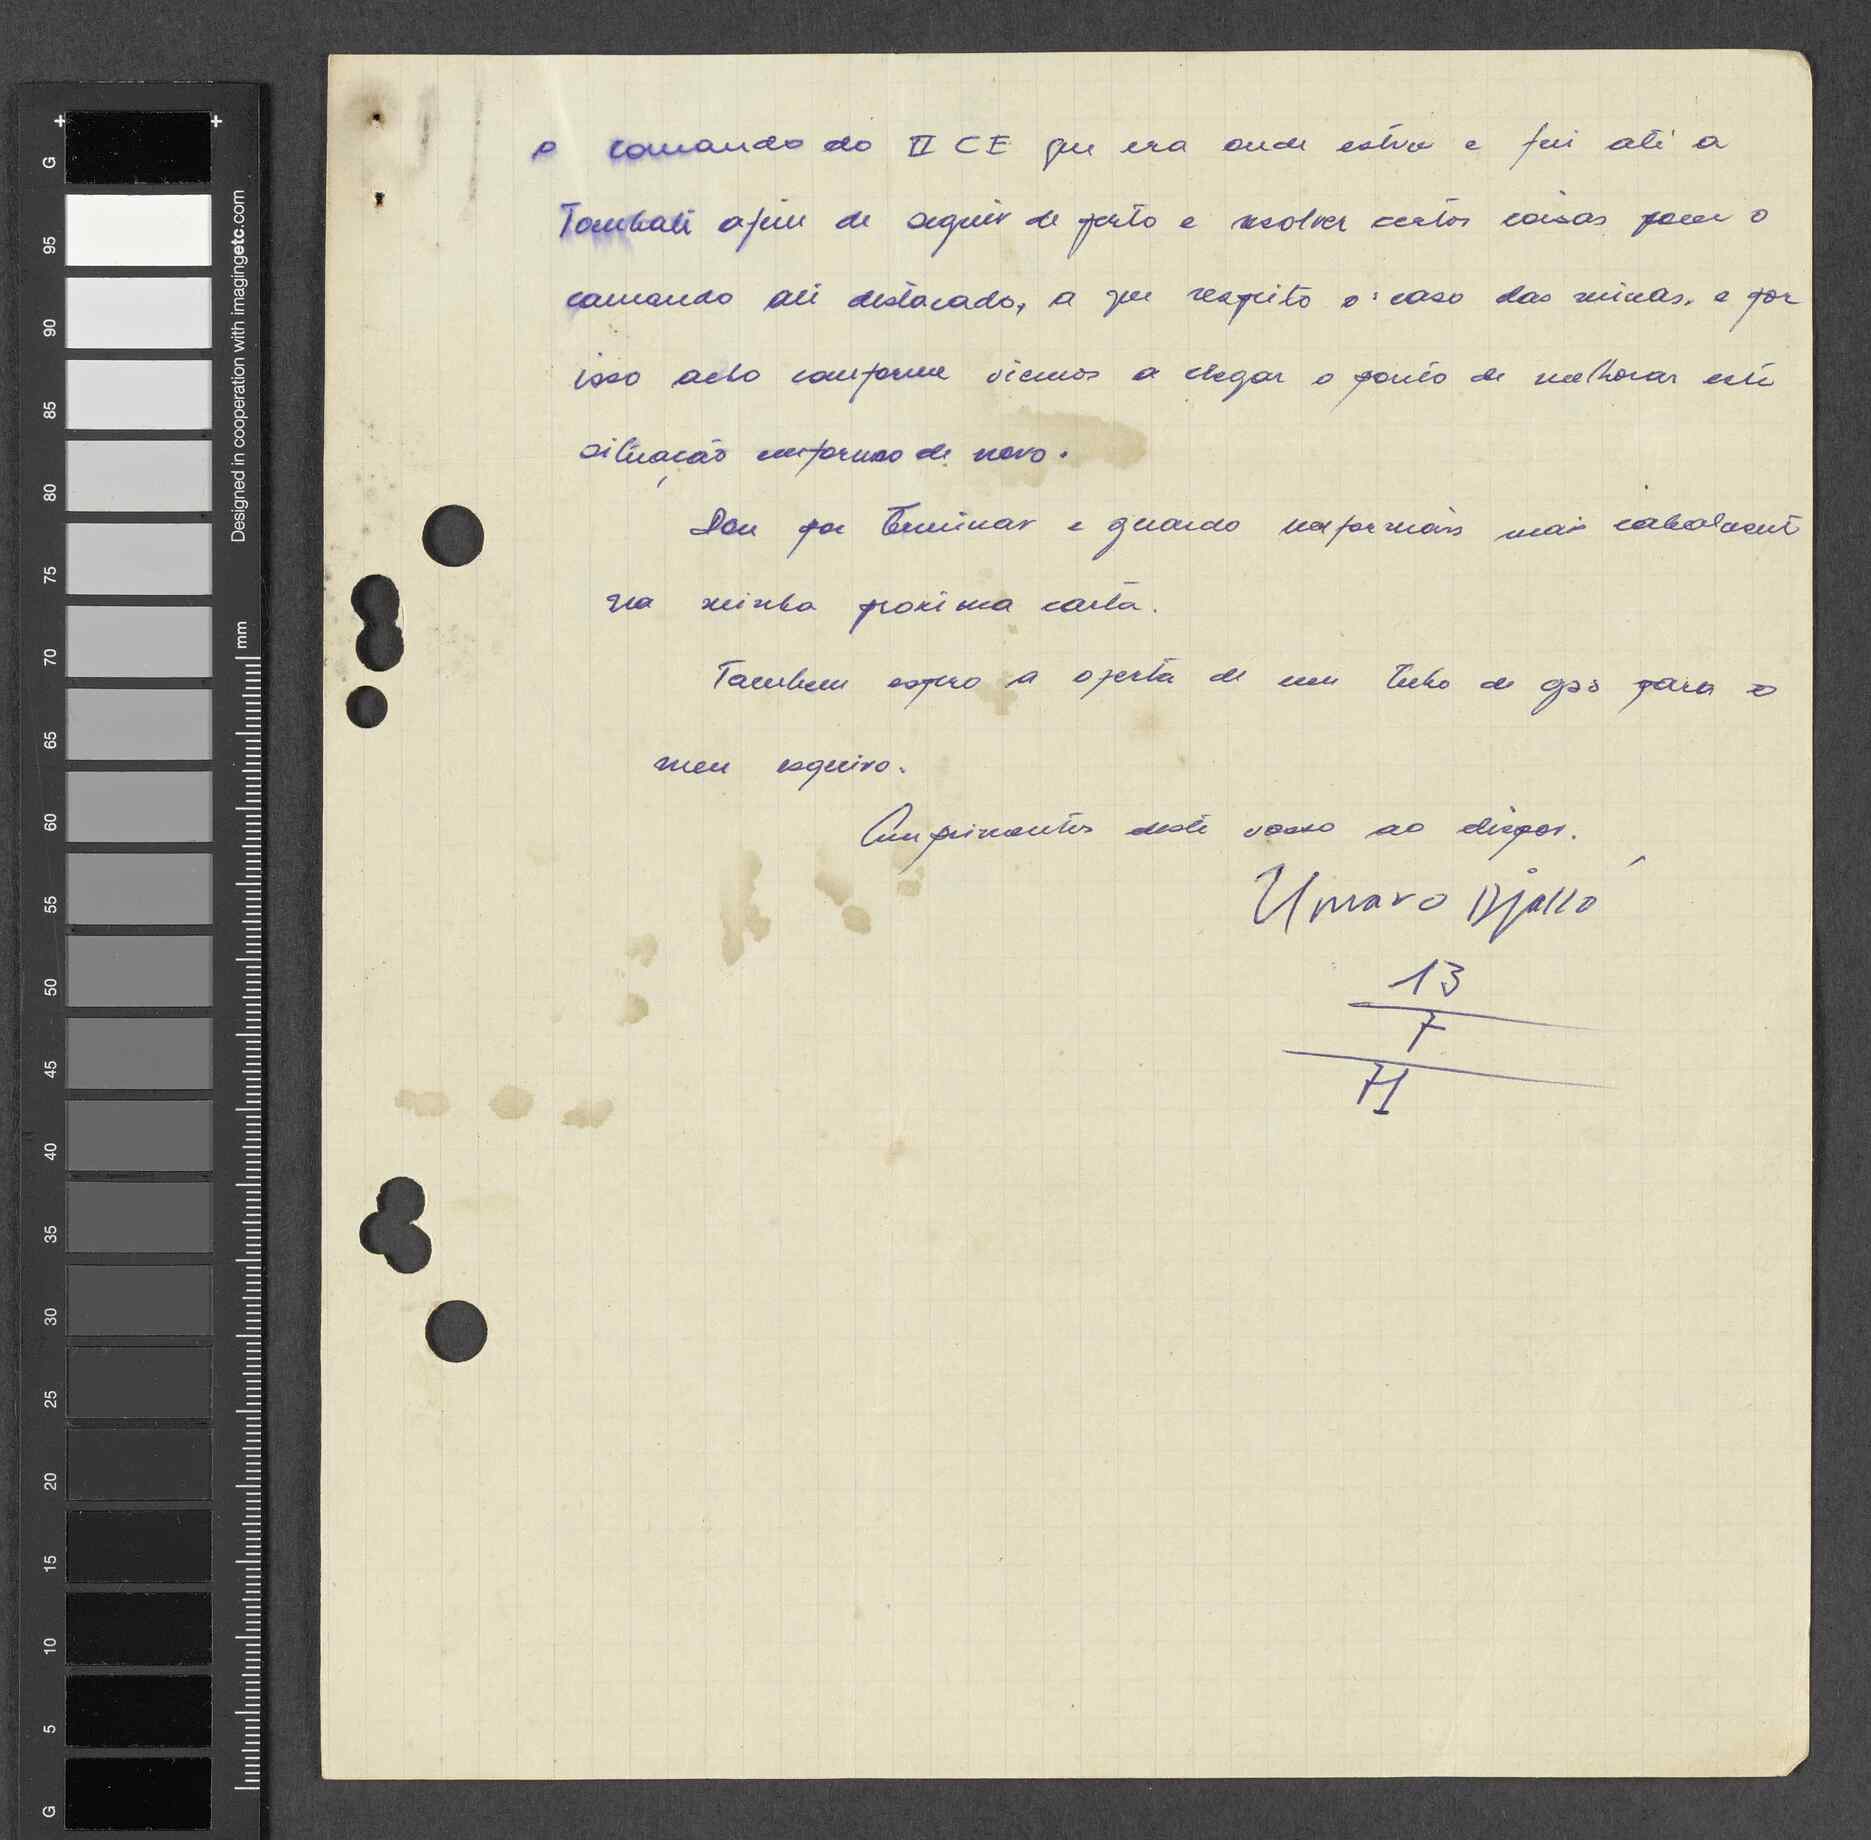 o comando do II CE que era onde estive e fui até a
Tombali afim de seguir de perto e resolver certos coisas com o
comando ali destacado, a que respeito o caso das minas. e por
isso acho conforme viemos a chegar o ponto de melhorar esti
situação de novo.
Dou por terminar e guardo mais
na minha proxima carta.
Tambem espero a oferta de um tubo de gás para o
meu esqueiro.
Cumprimentos deste vosso ao dispor.
Umaro Djalló
13
7
71
Designed in cooperation with imagingetc.com
mm
G
95
90
85
80
75
70
65
60
55
50
45
40
35
30
25
20
15
10
5
G